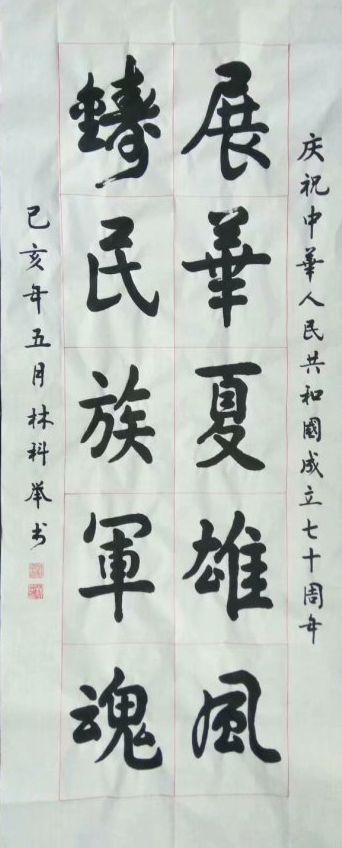 庆祝中華人民共和國成立七十周年
展華夏雄風
鑄民族軍魂
己亥年五月林科举书